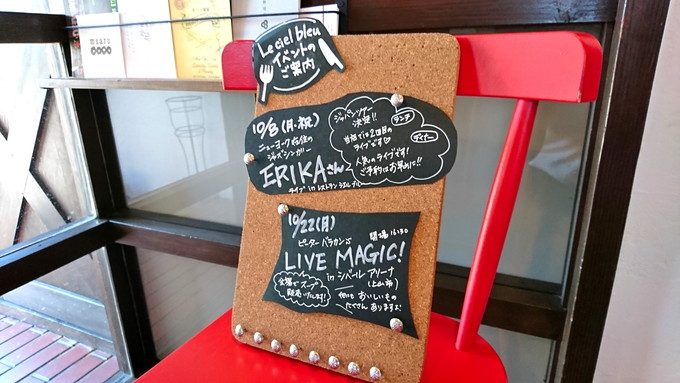 Le ciel bleu
イベントの
ご案内
10/8(月・祝)
ニューヨーク在住の
ジャズシンガー
ERIKAさん
ライブ in レストラン シエル ブルー
ジャパンツアー
決定!!
当店では2回目の
ライブです♡
ランチ
ディナー
人気のライブです!
ご予約はお早めに!!
10/22(月)
ピーター バラカン's
開場 16:30
LIVE MAGIC!
in シベールアリーナ
(山形市)
会場でスープ
販売いたします!!
他にもおいしいもの
たくさんありますよ!